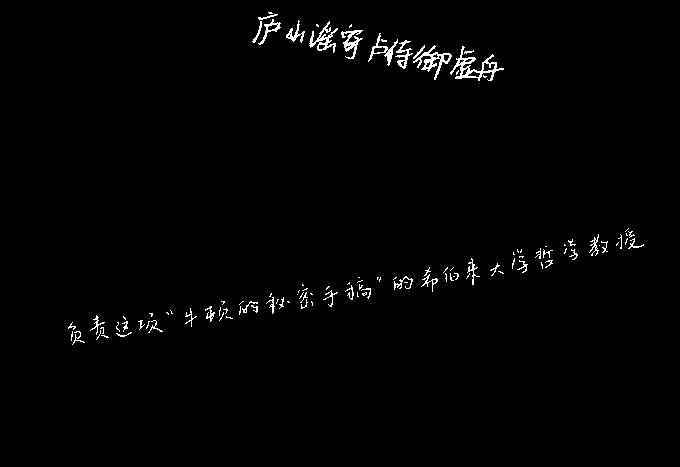 庐山谣寄卢侍御虚舟
负责这项“牛顿的秘密手稿”的希伯来大学哲学教授